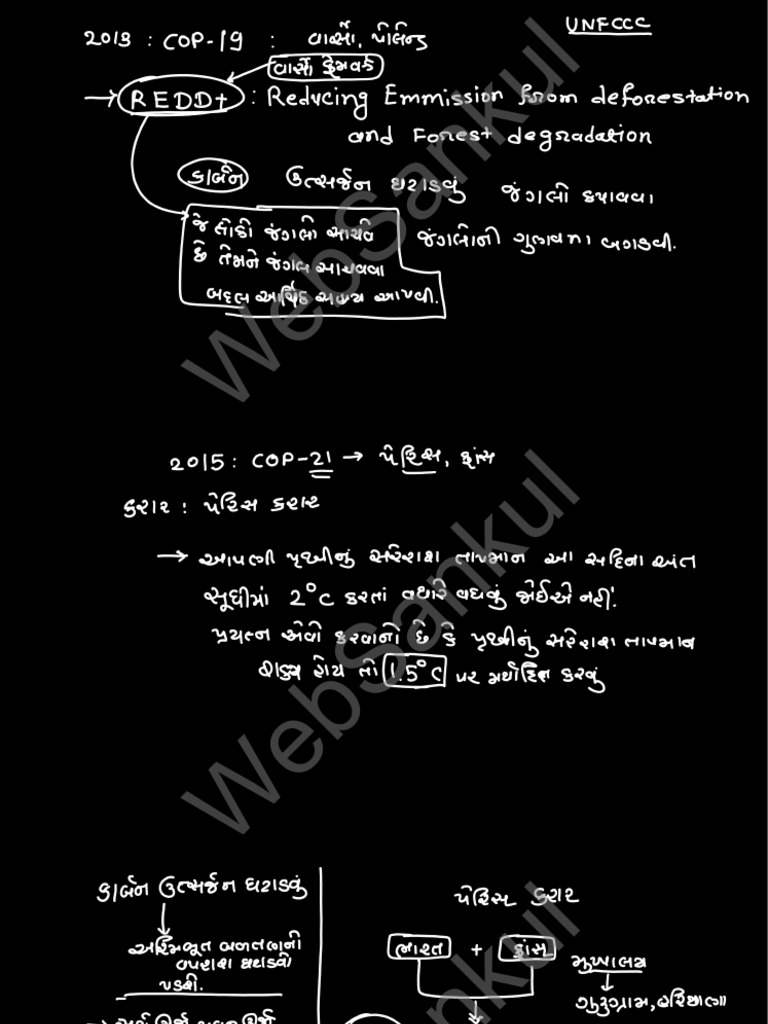 UNFCCC
2013 : COP-19 : વાર્સો, પોલેન્ડ
વાર્સો ફ્રેમવર્ક
→ REDD+ : Reducing Emmission from deforestation
and Forest degradation
કાર્બન ઉત્સર્જન ઘટાડવું જંગલો કપાવવા
જે લોકો જંગલો સાચવે જંગલોની ગુણવત્તા બગડવી.
છે તેમને જંગલ સાચવવા
બદલ આર્થિક સહાય આપવી.
2015 : COP-21 → પેરિસ, ફ્રાંસ
કરાર : પેરિસ કરાર
→ આપણી પૃથ્વીનું સરેરાશ તાપમાન આ સદીના અંત
સુધીમાં 2°C કરતાં વધારે વધવું જોઈએ નહીં.
પ્રયત્ન એવો કરવાનો છે કે પૃથ્વીનું સરેરાશ તાપમાન
શક્ય હોય તો 1.5°C પર મર્યાદિત કરવું
કાર્બન ઉત્સર્જન ઘટાડવું
અશ્મિભૂત બળતણની
વપરાશ ઘટાડવી
પડશે.
પેરિસ કરાર
ભારત + ફ્રાંસ
મુખ્યાલય
ગુરુગ્રામ, હરિયાણા
WebSankul
WebSankul
WebSankul